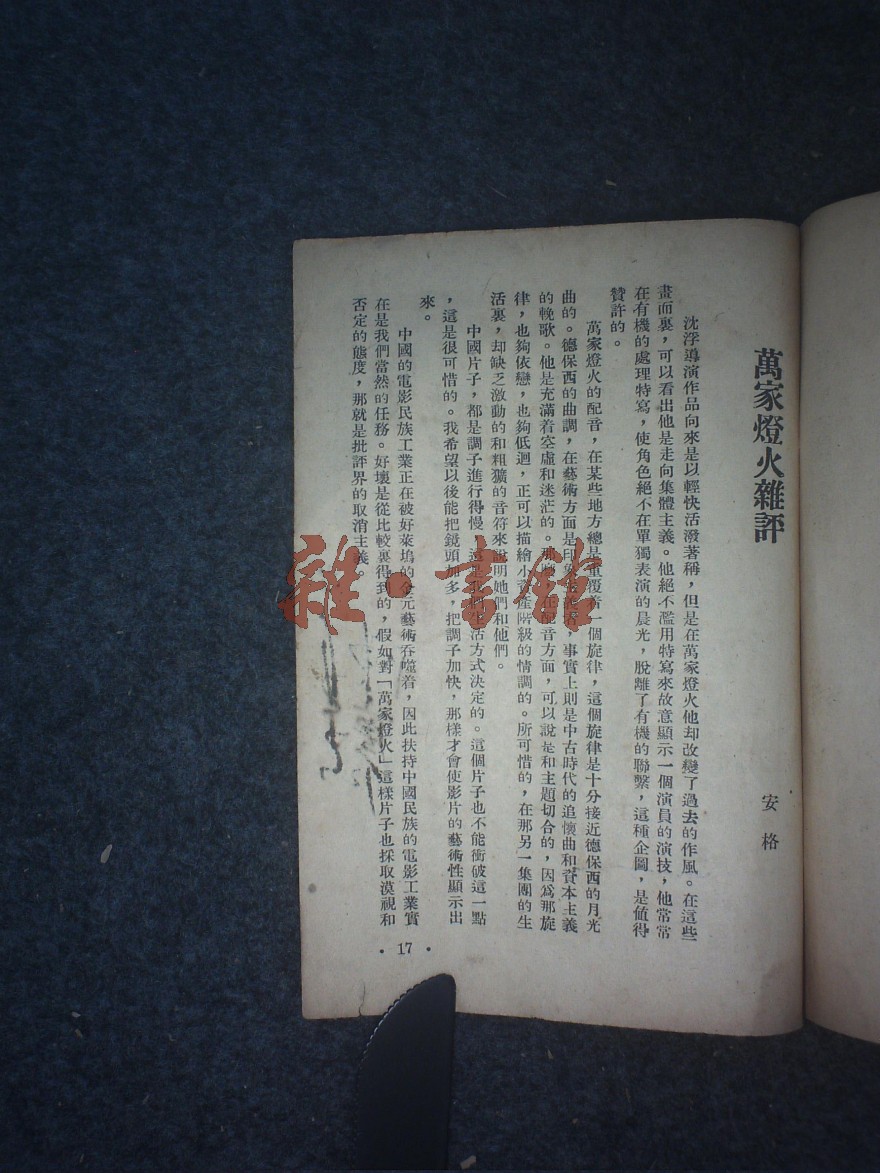 萬家燈火雜評
安格
沈浮導演作品向來是以輕快活潑著稱，但是在萬家燈火他却改變了過去的作風。在這些
畫面裏，可以看出他是走向集體主義。他絕不濫用特寫來故意顯示一個演員的演技，他常常
在有機的處理特寫，使角色絕不在單獨表演的晨光，脫離了有機的聯繫，這種企圖，是値得
贊許的。
萬家燈火的配音，在某些地方總是重覆着一個旋律，這個旋律是十分接近德保西的月光
曲的。德保西的曲調，在藝術方面是印象主義者，事實上則是中古時代的追懷曲和資本主義
的輓歌。他是充滿着空虛和迷茫的。那麼在配音方面，可以說是和主題切合的，因爲那旋
律，也夠依戀，也夠低迴，正可以描繪小資產階級的情調的。所可惜的，在那另一集團的生
活裏，却缺乏激動的和粗獷的音符來說明她們和他們。
中國片子，都是調子進行得慢，這是我們生活方式決定的。這個片子也不能衝破這一點
，這是很可惜的。我希望以後能把鏡頭加多，把調子加快，那樣才會使影片的藝術性顯示出
來。
中國的電影民族工業正在被好萊塢的金元藝術吞噬着，因此扶持中國民族的電影工業實
在是我們當然的任務。好壞是從比較裏得到的，假如對「萬家燈火」這樣片子也採取漠視和
否定的態度，那就是批評界的取消主義。
• 17 •
雜·書館